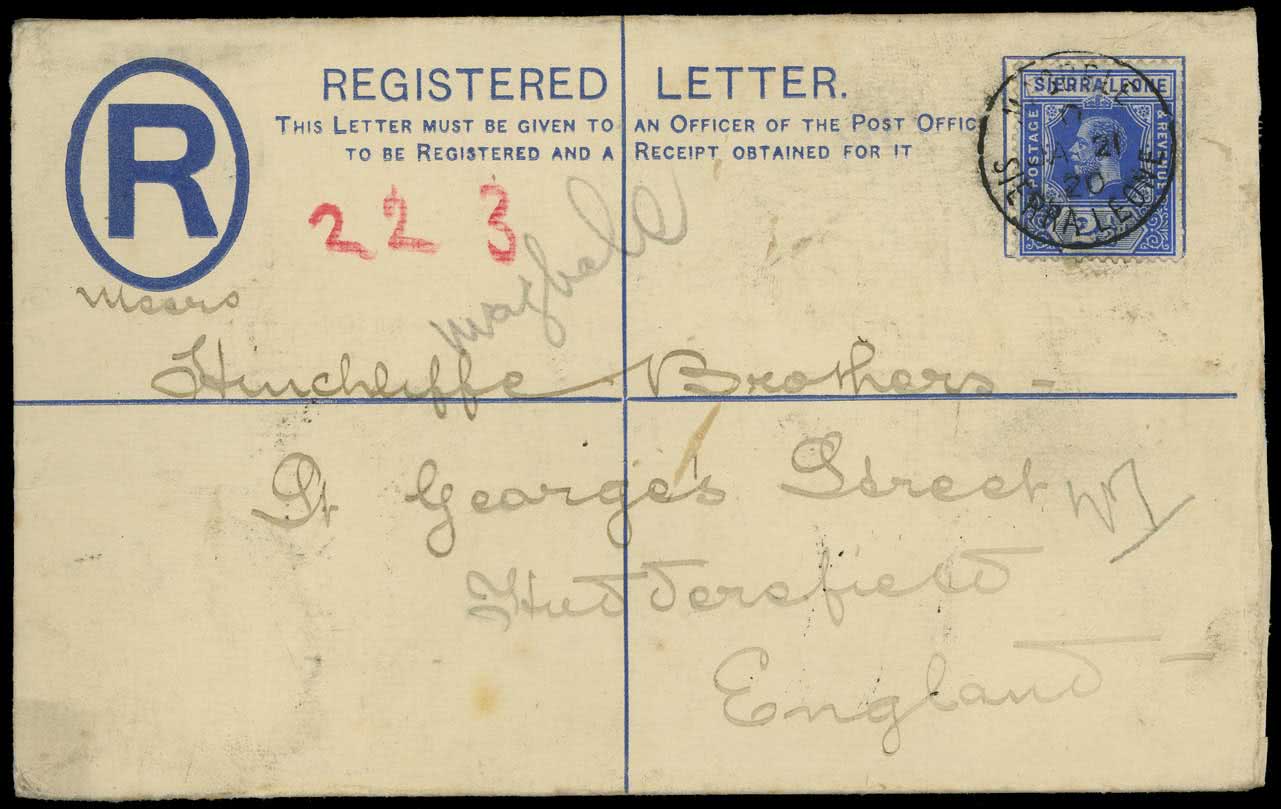 R
REGISTERED LETTER.
THIS LETTER MUST BE GIVEN TO AN OFFICER OF THE POST OFFIC
TO BE REGISTERED AND A RECEIPT OBTAINED FOR IT
SIERRA LEONE
POSTAGE & REVENUE
JA 21
20
SIERRA LEONE
223
Magbele
Messrs
Hinchliffe Brothers -
St George's Street
Huddersfield
England -